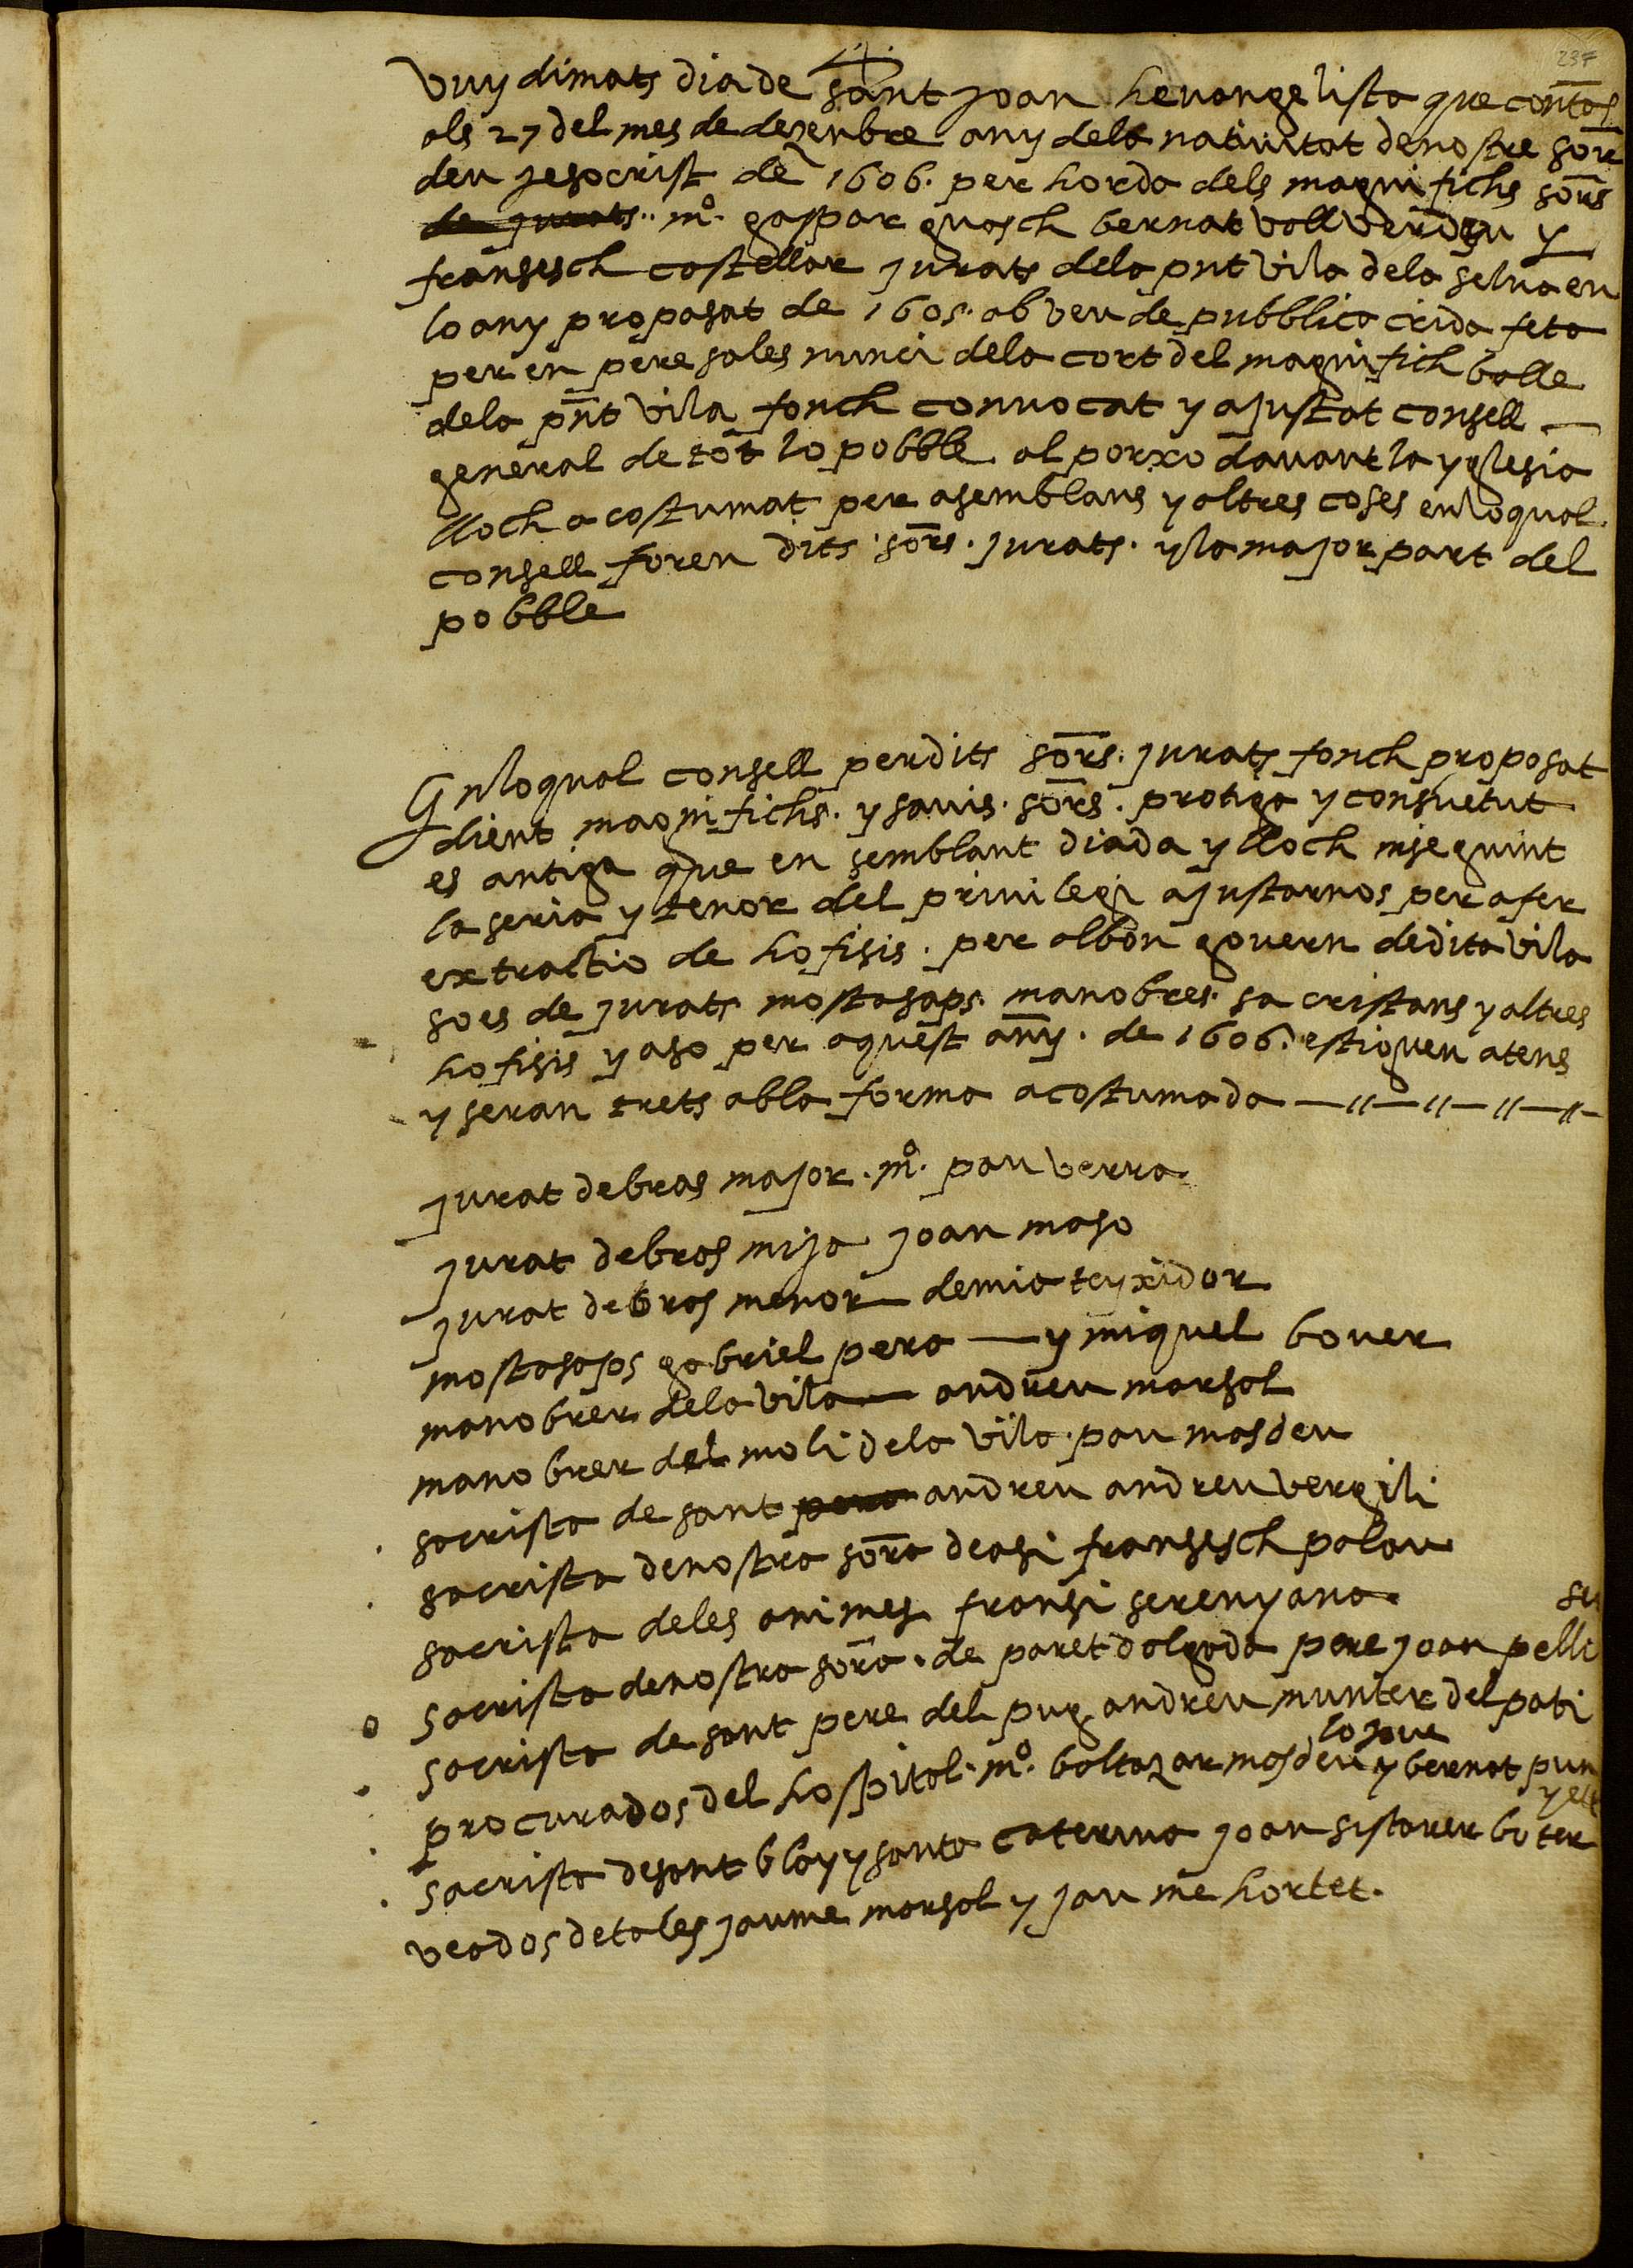 237
vuy dimats dia de sant joan hevangelista que contas
als 27 del mes de dezenbre any dela nativitat de nostre sor̄
deu jesocrist de 1606. per horda dels magnifichs sors̄
de jurats.. mº. gaspar guasch bernat vallverdu y
fransesch castellar jurats dela pnt vila dela selva en
lo any propasat de 1605. ab veu de pubblica crida feta
per en pere sales nunci dela cort del magnifich balle
dela pn̄t vila fonch convocat y ajustat consell —
general de tot lo pobble al porxo davant la yglesia
lloch acostumat per asemblans y altres coses en loqual
consell foren dits sors̄. jurats. y la major part del
pobble
En loqual consell per dits sors̄. jurats fonch proposat
dient magnifichs. y savis. sors̄. pratiga y consuetut
es antiga que en semblant diada y lloch inseguint
la seria y tenor del privilegi ajustarnos per afer
extractio de hofisis. per al bon govern de dita vila
soes de jurats mostasaps. manobres. sacristans y altres
hofisis y aso per aquest any. de 1606. estiguen atens
y seran trets ab la forma acostumada —//—//—//—//—
jurat de bras major. mº. pau verra
jurat de bras mija joan maso
jurat de bras menor demia teyxidor
mostasaps gabriel pera — y miquel bover
manobrer dela vila — andreu marsal
manobrer del moli dela vila. pau masdeu
sacrista de sant pere andreu andreu vergili
sacrista de nostra sorā de asi fransesch palau
sacrista deles animes fransi serenyana
se
sacrista de nostra sorā. de paret dalgada pere joan pelli
sacrista de sant pere del pug andreu munter del pati
lo jove
procurados del hospital. mº. baltazar masdeu y bernat pun
yell
sacrista de sant bloy y santa caterina joan sistarer boter
veados de tales jaume marsal y jaume hortet.